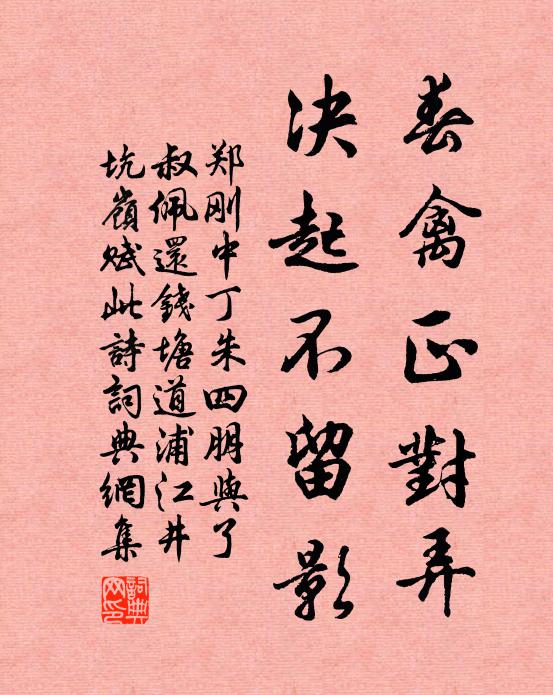 春禽正對弄
決起不留影
郑刚中丁朱四明與了
叔佩還錢塘道浦江井
坑嶺賦此詩詞典網集
詞典网印